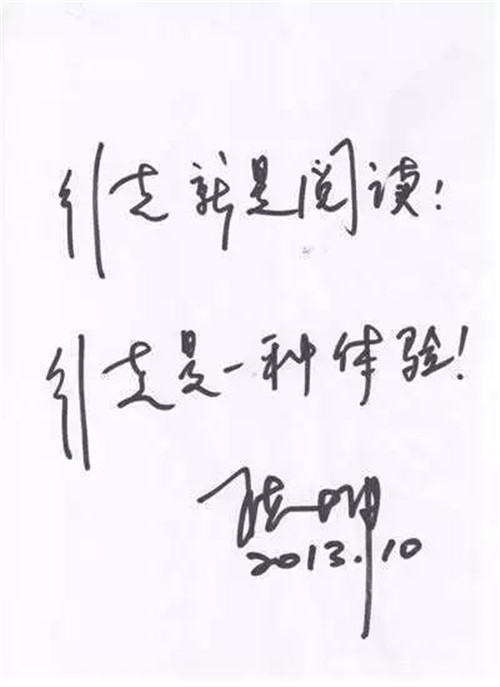 行走就是阅读!
行走是一种体验!
2013.10